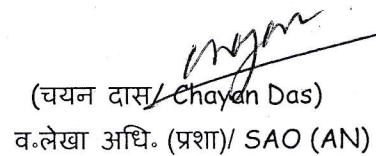 (चयन दास/ Chayan Das)
व॰लेखा अधि॰ (प्रशा)/ SAO (AN)